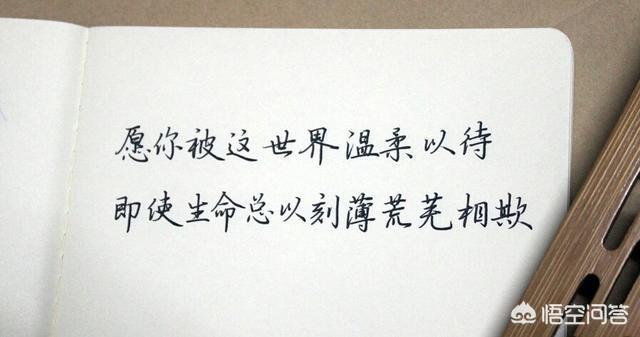 愿你被这世界温柔以待
即使生命总以刻薄荒芜相欺
悟空问答